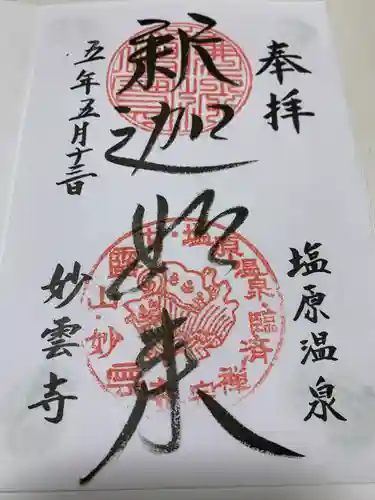 奉拝
塩原温泉
釈迦如来
五年五月十三日
妙雲寺
塩原温泉・臨済禅宗